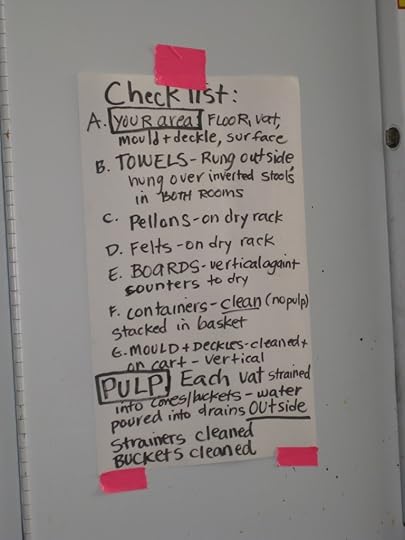 Check list:
A. YOUR area FLOOR, vat,
mould + deckle, surface
B. TOWELS - Rung outside
hung over inverted stools
in BOTH ROOMS
C. Pellons - on dry rack
D. Felts - on dry rack
E. BOARDS - vertical againt
counters to dry
F. containers - clean (no pulp)
stacked in basket
G. MOULD + DECKLES - cleaned +
on cart - vertical
PULP Each vat strained
into cones/buckets - water
poured into drains OUTSIDE
strainers cleaned
BUCKETS cleaned